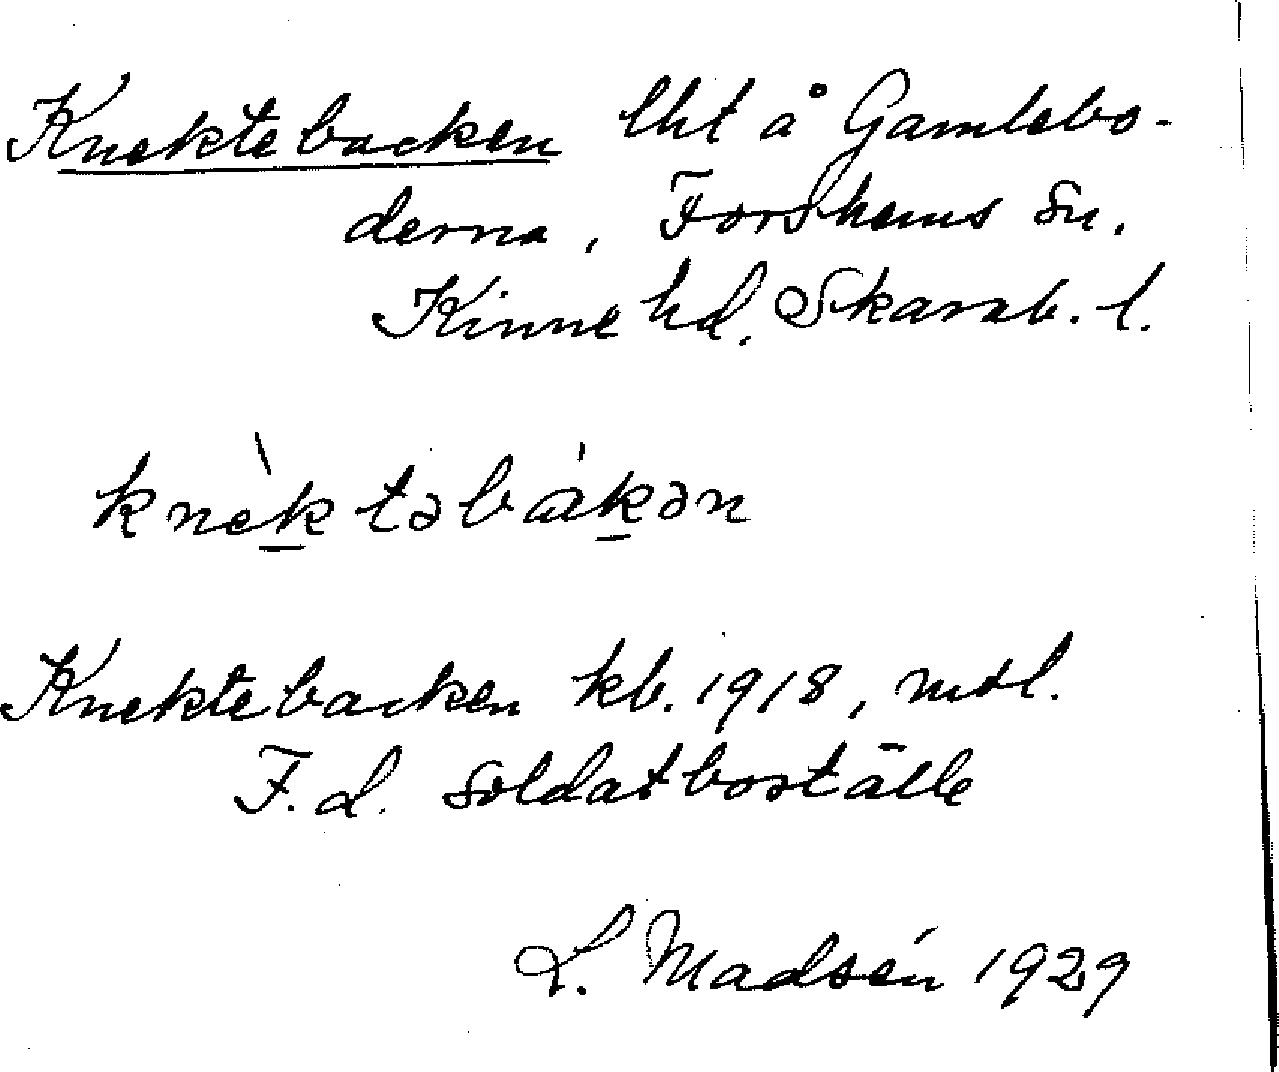 Knektebacken lht å Gamlebo-
derna, Forshems Sn.
Kinne hd. Skarab. l.
knèktəbákən
Knektebacken kb. 1918, mtl.
F. d. soldatboställe
L. Madsén 1929